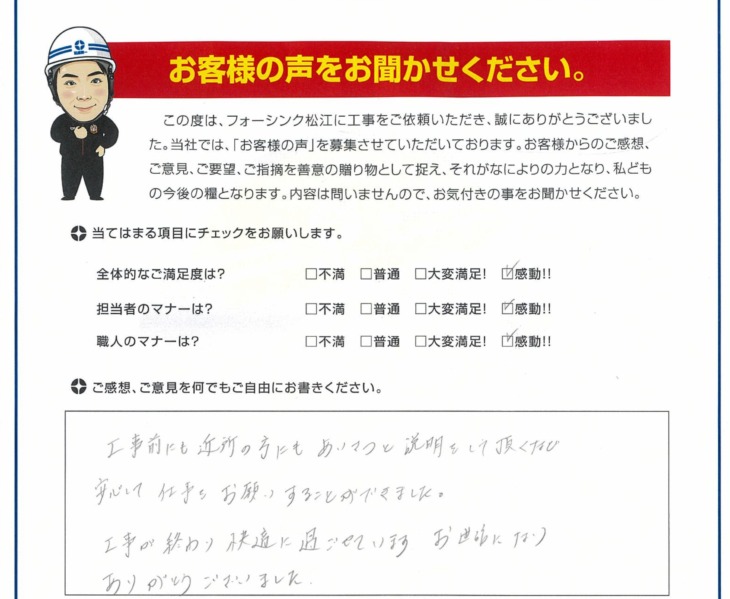 お客様の声をお聞かせください。
この度は、フォーシンク松江に工事をご依頼いただき、誠にありがとうございまし
た。当社では、「お客様の声」を募集させていただいております。お客様からのご感想、
ご意見、ご要望、ご指摘を善意の贈り物として捉え、それがなによりの力となり、私ども
の今後の糧となります。内容は問いませんので、お気付きの事をお聞かせください。
当てはまる項目にチェックをお願いします。
全体的なご満足度は? □不満 □普通 □大変満足! ☑感動!!
担当者のマナーは? □不満 □普通 □大変満足! ☑感動!!
職人のマナーは? □不満 □普通 □大変満足! ☑感動!!
ご感想、ご意見を何でもご自由にお書きください。
工事前にも近所の方にもあいさつと説明をして頂くなど
安心して仕事をお願いすることができました。
工事が終わり快適に過ごせています お世話になり
ありがとうございました.